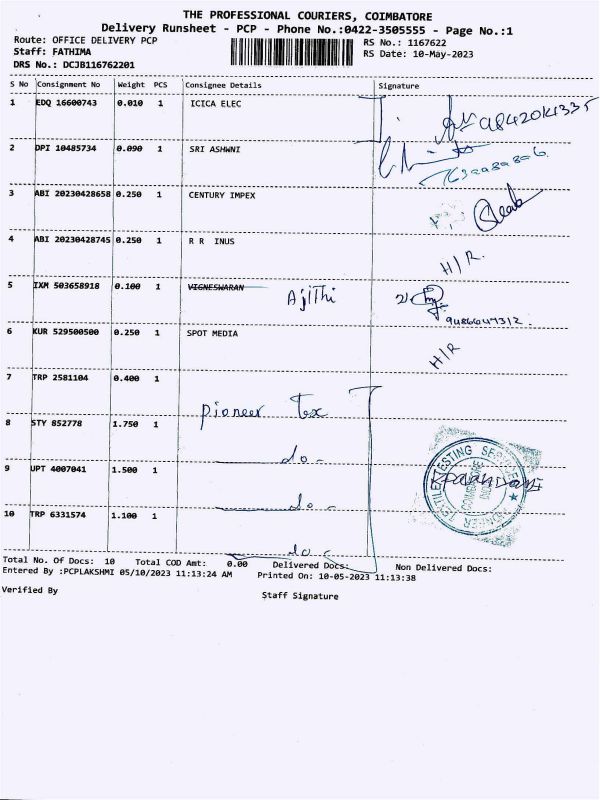 THE PROFESSIONAL COURIERS, COIMBATORE
Delivery Runsheet - PCP - Phone No.:0422-3505555 - Page No.:1
Route: OFFICE DELIVERY PCP
RS No.: 1167622
Staff: FATHIMA
RS Date: 10-May-2023
DRS No.: DCJB116762201
S No Consignment No Weight PCS Consignee Details Signature
1 EDQ 16600743 0.010 1 ICICA ELEC
2 DPI 10485734 0.090 1 SRI ASHWNI
3 ABI 20230428658 0.250 1 CENTURY IMPEX
4 ABI 20230428745 0.250 1 R R INUS
H/R.
5 IXM 503658918 0.100 1 VIGNESWARAN Ajithi
6 KUR 529500500 0.250 1 SPOT MEDIA
H/R
7 TRP 2581104 0.400 1
pioneer Tex
8 STY 852778 1.750 1
do-
9 UPT 4007041 1.500 1
do-
10 TRP 6331574 1.100 1
do-
Total No. Of Docs: 10 Total COD Amt: 0.00 Delivered Docs: Non Delivered Docs:
Entered By :PCPLAKSHMI 05/10/2023 11:13:24 AM Printed On: 10-05-2023 11:13:38
Verified By
Staff Signature